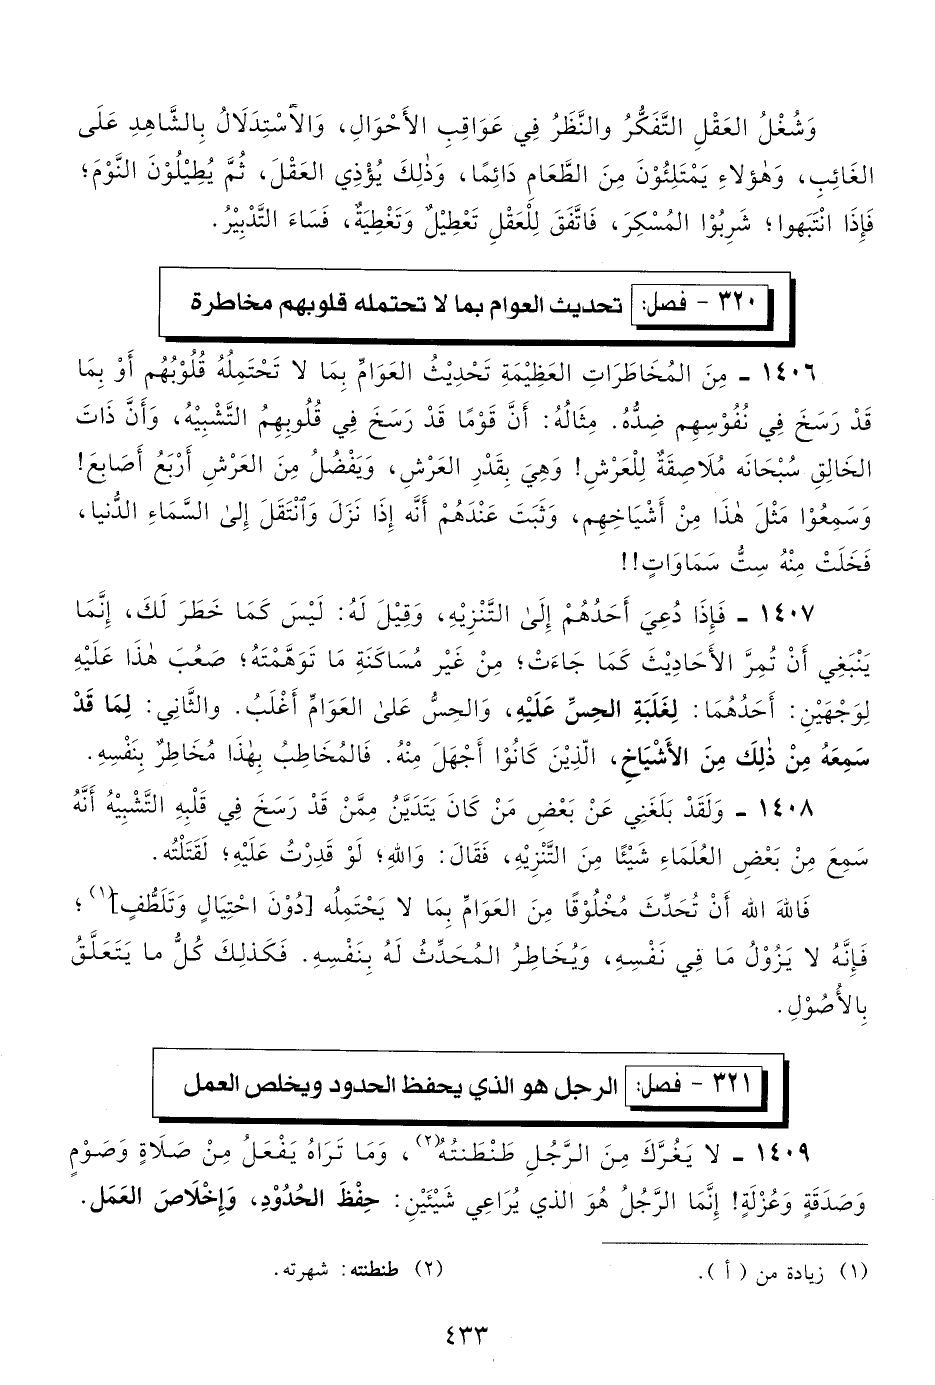 وَشُغْلُ العَقْلِ التَّفَكُّرُ والنَّظَرُ فِي عَوَاقِبِ الأَحْوَالِ، وَالاسْتِدْلَالُ بِالشَّاهِدِ عَلَى
الغَائِبِ، وَهٰؤلاءِ يَمْتَلِئُوْنَ مِنَ الطَّعَامِ دَائِمًا، وَذٰلِكَ يُؤْذِي العَقْلَ، ثُمَّ يُطِيْلُوْنَ النَّوْمَ؛
فَإِذَا انْتَبَهوا؛ شَرِبُوْا المُسْكِرَ، فَاتَّفَقَ لِلْعَقْلِ تَعْطِيْلٌ وَتَغْطِيَةٌ، فَسَاءَ التَّدْبِيْرُ.
٣٢٠ - فصل: تحديث العوام بما لا تحتمله قلوبهم مخاطرة
١٤٠٦ - مِنَ المُخَاطَرَاتِ العَظِيْمَةِ تَحْدِيْثُ العَوَامِّ بِمَا لا تَحْتَمِلُهُ قُلُوْبُهُم أَوْ بِمَا
قَدْ رَسَخَ فِي نُفُوْسِهِم ضِدُّهُ. مِثَالُهُ: أَنَّ قَوْمًا قَدْ رَسَخَ فِي قُلُوبِهِمُ التَّشْبِيْهُ، وَأَنَّ ذَاتَ
الخَالِقِ سُبْحَانَه مُلَاصِقَةٌ لِلْعَرْشِ! وَهِيَ بِقَدْرِ العَرْشِ، وَيَفْضُلُ مِنَ العَرْشِ أَرْبَعُ أَصَابِعَ!
وَسَمِعُوْا مَثْلَ هٰذَا مِنْ أَشْيَاخِهِم، وَثَبَتَ عَنْدَهُمْ أَنَّه إِذَا نَزَلَ وَانْتَقَلَ إِلىٰ السَّمَاءِ الدُّنيا،
فَخَلَتْ مِنْهُ سِتُّ سَمَاوَاتٍ!!
١٤٠٧ - فَإِذَا دُعِيَ أَحَدُهُمْ إِلىٰ التَّنْزِيْهِ، وَقِيْلَ لَهُ: لَيْسَ كَمَا خَطَرَ لَكَ، إِنَّمَا
يَنْبَغِي أَنْ تُمِرَّ الأَحَادِيْثَ كَمَا جَاءَتْ؛ مِنْ غَيْرِ مُسَاكَنَةِ مَا تَوَهَّمْتَهُ؛ صَعُبَ هٰذَا عَلَيْهِ
لِوَجْهَيْنِ: أَحَدُهُمَا: لِغَلَبَةِ الحِسِّ عَلَيْهِ، وَالحِسُّ عَلىٰ العَوَامِّ أَغْلَبُ. والثَّانِي: لِمَا قَدْ
سَمِعَهُ مِنْ ذٰلِكَ مِنَ الأَشْيَاخِ، الَّذِيْنَ كَانُوْا أَجْهَلَ مِنْهُ. فَالمُخَاطِبُ بِهٰذَا مُخَاطِرٌ بِنَفْسِهِ.
١٤٠٨ - وَلَقَدْ بَلَغَنِي عَنْ بَعْضِ مَنْ كَانَ يَتَدَيَّنُ مِمَّنْ قَدْ رَسَخَ فِي قَلْبِهِ التَّشْبِيْهُ أَنَّهُ
سَمِعَ مِنْ بَعْضِ العُلَمَاءِ شَيْئًا مِنَ التَّنْزِيْهِ، فَقَالَ: وَاللهِ؛ لَوْ قَدِرْتُ عَلَيْهِ؛ لَقَتَلْتُه.
فَاللهَ الله أَنْ تُحَدِّثَ مُخْلُوْقًا مِنَ العَوَامِّ بِمَا لا يَحْتَمِلُه [دُوْنَ احْتِيَالٍ وَتَلَطُّفٍ](١)؛
فَإِنَّهُ لا يَزُوْلُ مَا فِي نَفْسِهِ، وَيُخَاطِرُ المُحَدِّثُ لَهُ بِنَفْسِهِ. فَكَذلِكَ كُلُّ ما يَتَعَلَّقُ
بِالأُصُوْلِ.
٣٢١ - فصل: الرجل هو الذي يحفظ الحدود ويخلص العمل
١٤٠٩ - لا يَغُرَّكَ مِنَ الرَّجُلِ طَنْطَنتُهُ(٢)، وَمَا تَرَاهُ يَفْعَلُ مِنْ صَلَاةٍ وَصَوْمٍ
وَصَدَقَةٍ وَعُزْلَةٍ! إِنَّمَا الرَّجُلُ هُوَ الذي يُرَاعِي شَيْئَيْنِ: حِفْظَ الحُدُوْدِ، وَإِخْلَاصَ العَمَلِ.
(١) زيادة من ( أ ).
(٢) طنطنته: شهرته.
٤٣٣